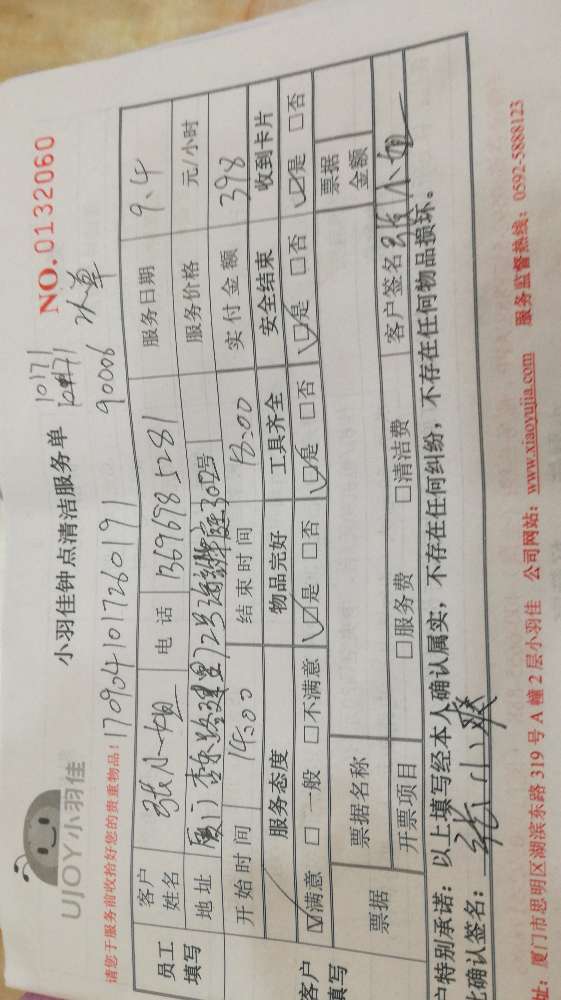 UJOY小羽佳
小羽佳钟点清洁服务单
10171
NO.0132060
请您于服务前收拾好您的贵重物品!
1709041017260191
90006
员工填写
客户姓名 张小姐 电话 13696985281 服务日期 9.4
地址 厦门 服务价格 元/小时
开始时间 14:00 结束时间 18:00 实付金额 398
服务态度 物品完好 工具齐全 安全结束 收到卡片
客户填写
☑满意 □一般 □不满意 ☑是 □否 ☑是 □否 ☑是 □否 ☑是 □否
票据 票据名称 票据金额
开票项目 □服务费 □清洁费 客户签名 张小姐
户特别承诺:以上填写经本人确认属实,不存在任何纠纷,不存在任何物品损坏。
此确认签名:张小爽
址:厦门市思明区湖滨东路 319 号 A 幢 2 层小羽佳 公司网站:www.xiaoyujia.com 服务监督热线:0592-5888123